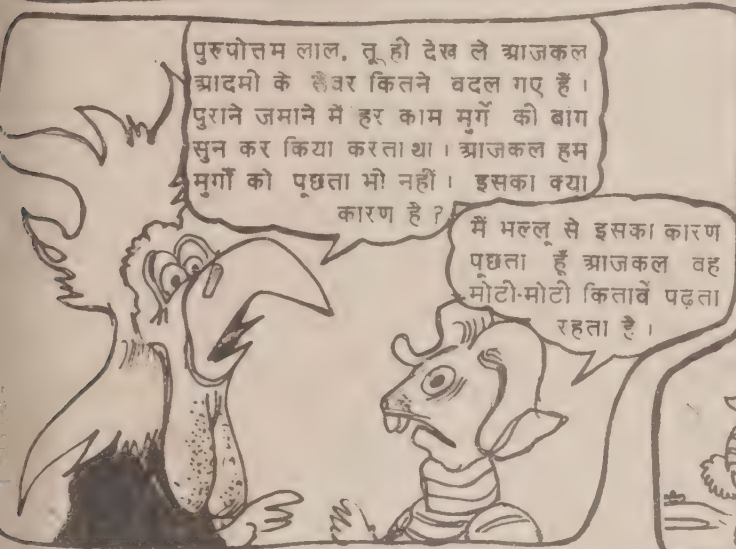 पुरुषोत्तम लाल, तू ही देख ले आजकल
आदमी के तेवर कितने बदल गए हैं।
पुराने जमाने में हर काम मुर्गे की बांग
सुन कर किया करता था। आजकल हम
मुर्गों को पूछता भी नहीं। इसका क्या
कारण है?
मैं भल्लू से इसका कारण
पूछता हूँ आजकल वह
मोटी-मोटी किताबें पढ़ता
रहता है।